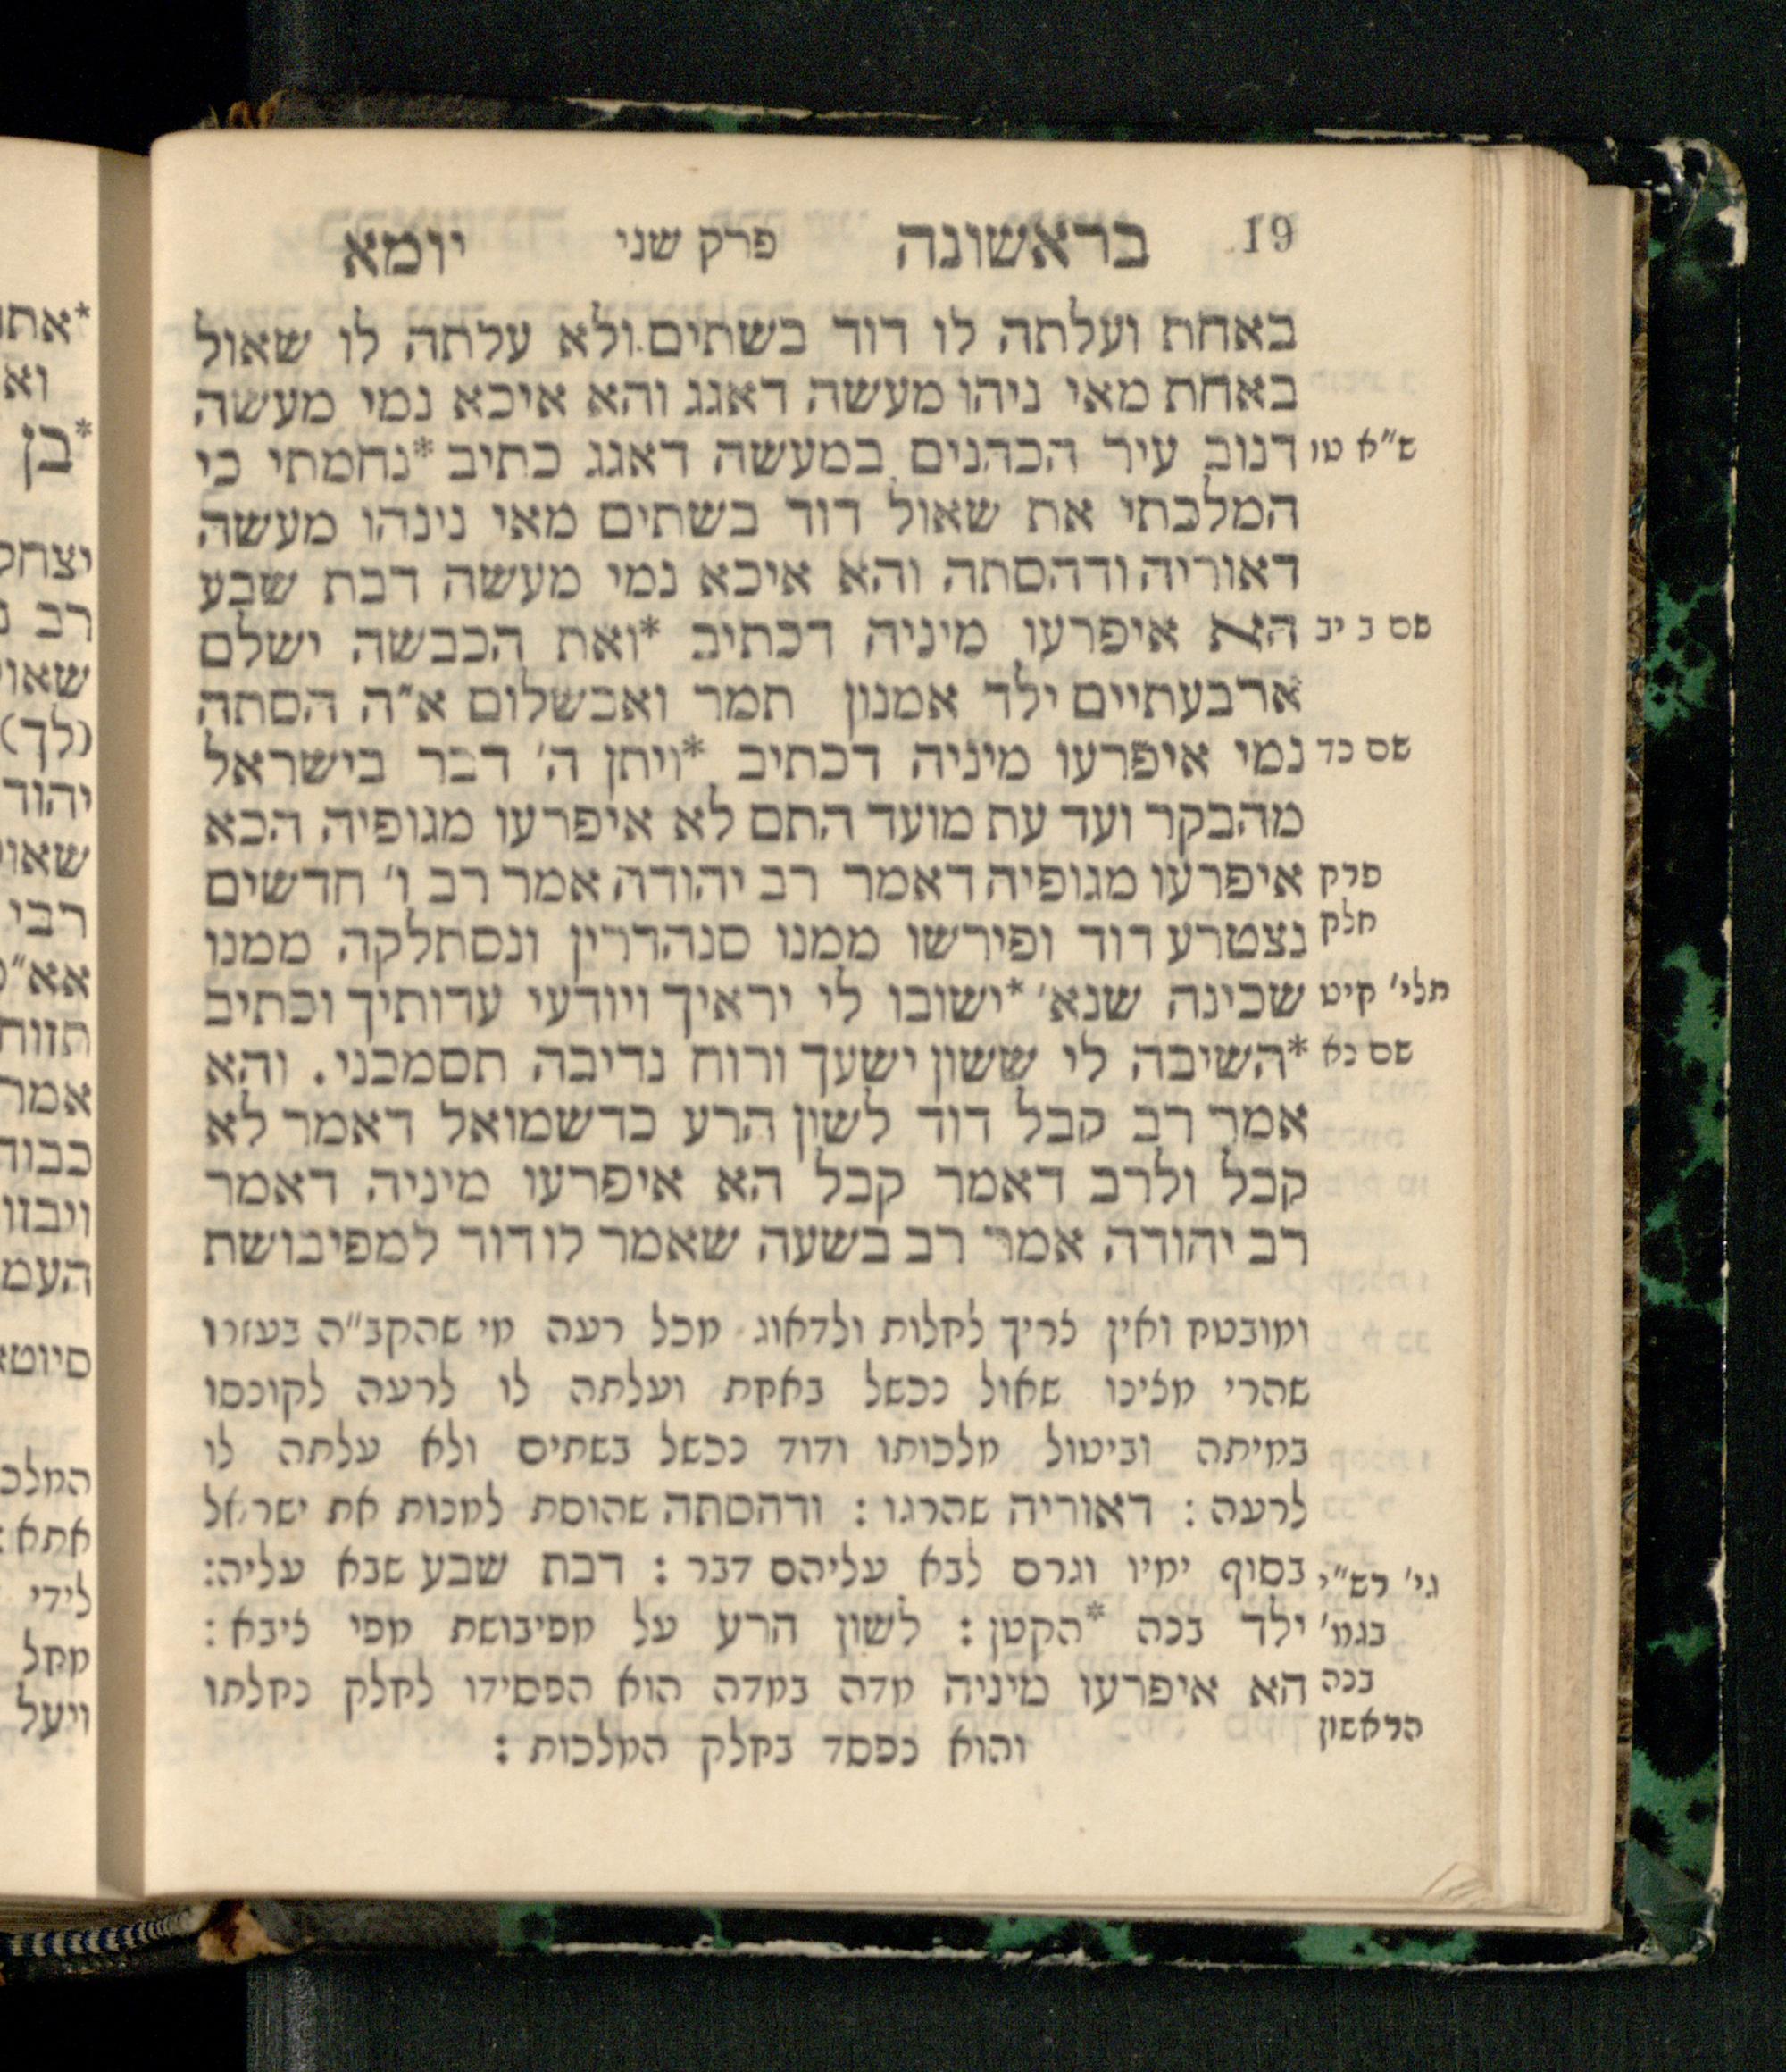 19 בראשונה פרק שני יומא
באחת ועלתה לו דוד בשתים ולא עלתה לו שאול
באחת מאי ניהו מעשה דאגג והא איכא נמי מעשה
ש"א טו דנוב עיר הכהנים במעשה דאגג כתיב *נחמתי כי
המלכתי את שאול דוד בשתים מאי נינהו מעשה
דאוריה ודהסתה והא איכא נמי מעשה דבת שבע
שם ב יב הא איפרעו מיניה דכתיב *ואת הכבשה ישלם
ארבעתיים ילד אמנון תמר ואבשלום א"ה הסתה
שם כד נמי איפרעו מיניה דכתיב *ויתן ה' דבר בישראל
מהבקר ועד עת מועד התם לא איפרעו מגופיה הכא
פרק איפרעו מגופיה דאמר רב יהודה אמר רב ו' חדשים
חלק נצטרע דוד ופירשו ממנו סנהדרין ונסתלקה ממנו
תלי' קיט שכינה שנא' *ישובו לי יראיך ויודעי עדותיך וכתיב
שם נא *השיבה לי ששון ישעך ורוח נדיבה תסמכני. והא
אמר רב קבל דוד לשון הרע כדשמואל דאמר לא
קבל ולרב דאמר קבל הא איפרעו מיניה דאמר
רב יהודה אמר רב בשעה שאמר לו דוד למפיבושת
ומובטח ואין צריך לחלות ולדאוג מכל רעה מי שהקב"ה בעזרו
שהרי מצינו שאול נכשל באחת ועלתה לו לרעה לקונסו
במיתה וביטול מלכותו ודוד נכשל בשתים ולא עלתה לו
לרעה: דאוריה שהרגו: ודהסתה שהוסת למנות את ישראל
גי' רש"י בסוף ימיו וגרם לבא עליהם דבר: דבת שבע שבא עליה:
בגמ' ילד בכה *הקטן: לשון הרע על מפיבושת מפי ציבא:
בכה הא איפרעו מיניה מדה במדה הוא הפסידו לחלק נחלתו
הראשון
והוא נפסד בחלק המלכות: